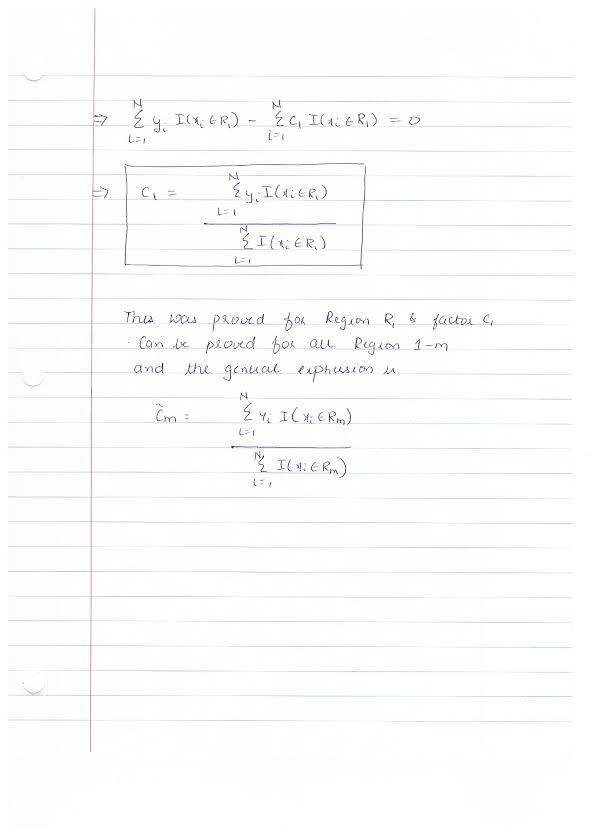 ⇒ $\sum_{i=1}^{N} y_i I(x_i \in R_1) - \sum_{i=1}^{N} c_1 I(x_i \in R_1) = 0$
⇒ $C_1 = \frac{\sum_{i=1}^{N} y_i I(x_i \in R_1)}{\sum_{i=1}^{N} I(x_i \in R_1)}$
This was proved for Region R₁ & factor C₁
· Can be proved for all Region 1-m
and the general expression is
$\tilde{C}_m = \frac{\sum_{i=1}^{N} y_i I(x_i \in R_m)}{\sum_{i=1}^{N} I(x_i \in R_m)}$